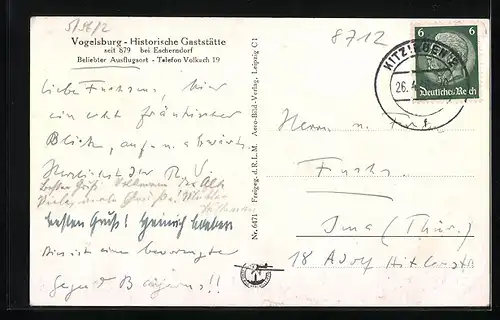 5/56/2
8712
Vogelsburg - Historische Gaststätte
seit 879 bei Escherndorf
Beliebter Ausflugsort - Telefon Volkach 19
Liebe Fuchsens, hier
ein echt fränkischer
Blick, auf- u. abwärts.
Herzlichst Ihr
Besten Gruß
besten Gruß! Heinrich
Dies ist eine bevorzugte
Gegend Bayerns!!
Nr. 6471 Freigeg. d. R.L.M. Aero-Bild-Verlag, Leipzig C1
KITZINGEN
26.4
6 6
Deutsches Reich
Herrn u. Frau
Fuchs
Jena (Thür.)
18 Adolf Hitlerstr